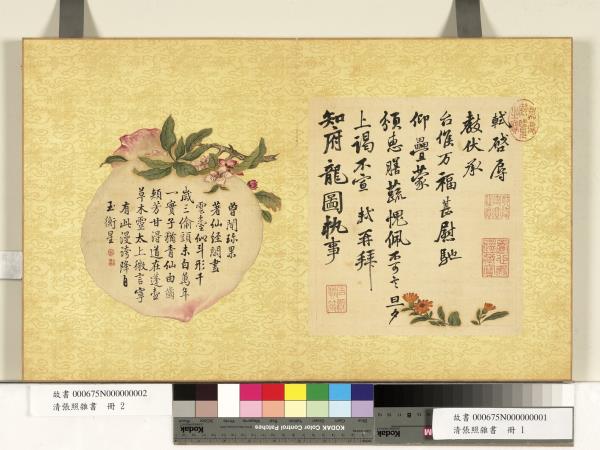 軾啓辱
教伏承
台候万福甚慰馳
仰疊蒙
頒惠膳蔬愧佩不可言旦夕
上謁不宣 軾再拜
知府龍圖執事
曾聞珠果
著仙經聞畫
雲臺似斗形千
歲三偷頭未白萬年
一實子猶青仙由齒
頰芳甘浸道在蓬壺
草木靈太上微言寧
有此漫誇降自
玉衡星
故書 000675N000000002
清張照雜書 冊 2
Kodak Color Control Patches
Kodak
故書 000675N000000001
清張照雜書 冊 1